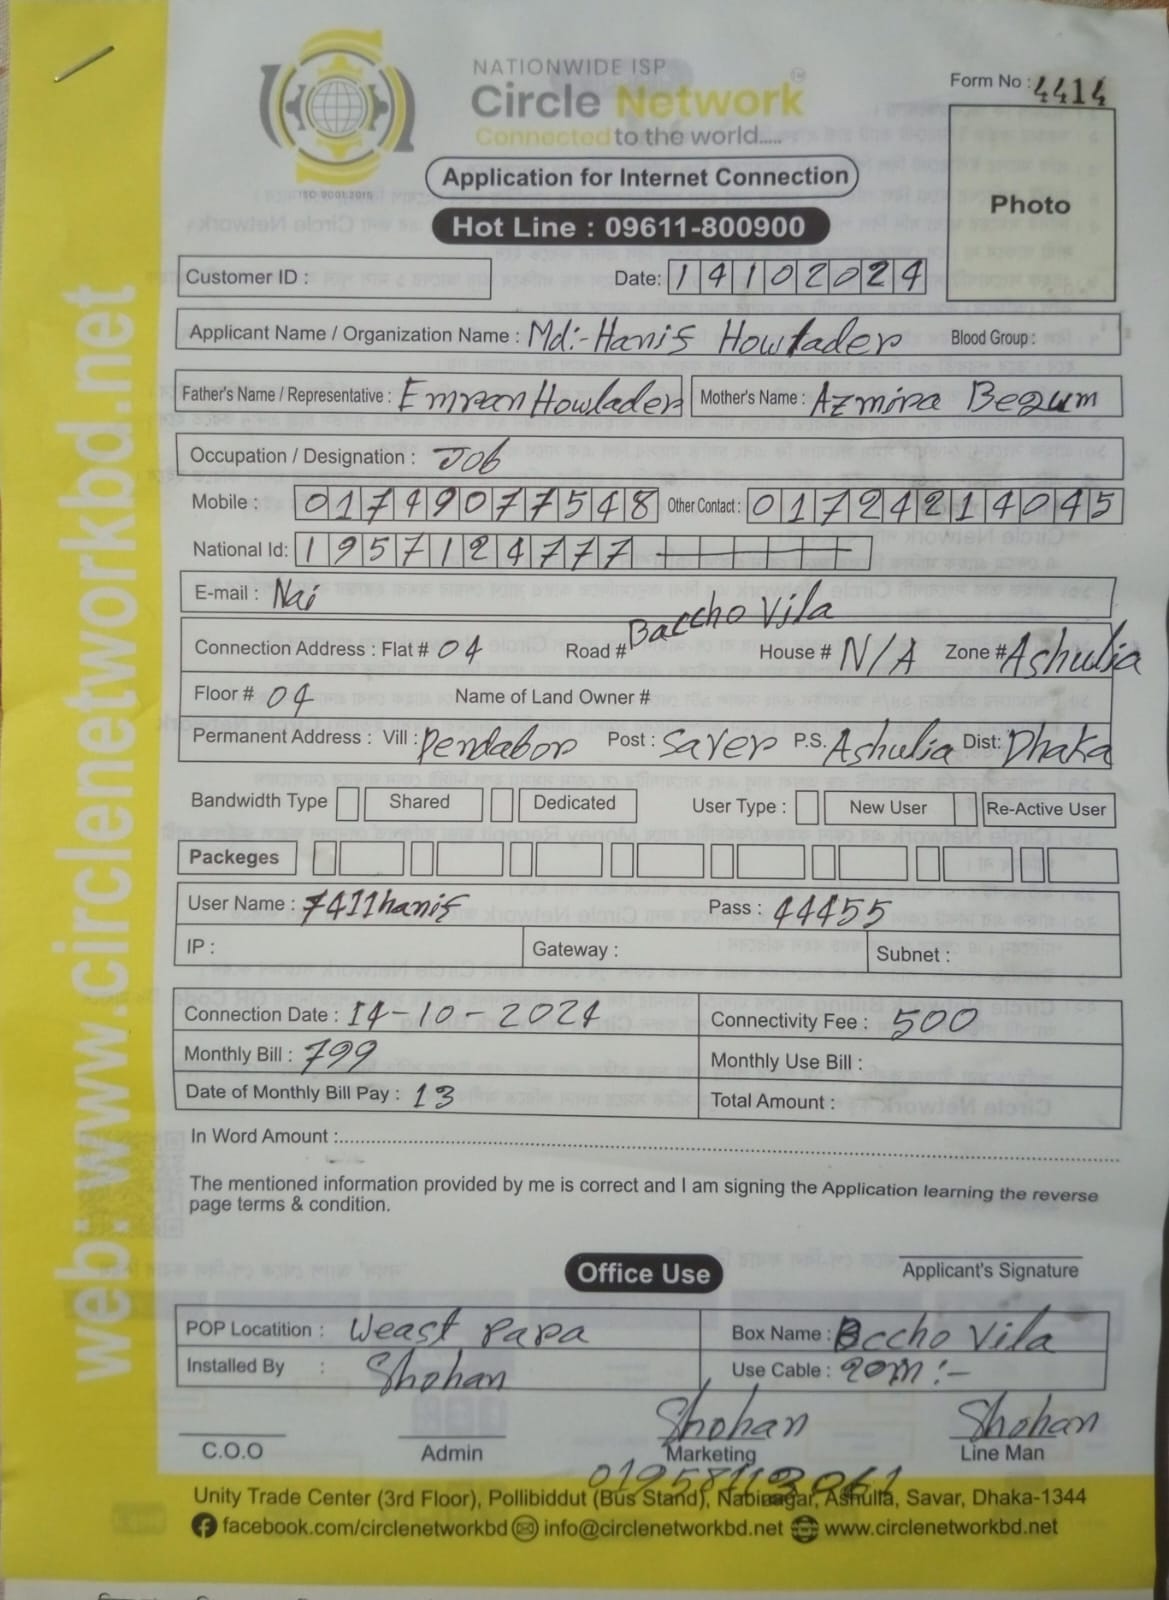 NATIONWIDE ISP
Circle Network
Connected to the world.....
ISO 9001:2015
Form No : 4414
Photo
Application for Internet Connection
Hot Line : 09611-800900
Customer ID :
Date: 14102024
Applicant Name / Organization Name : Md:- Hanif Howlader Blood Group :
Father's Name / Representative : Emran Howlader Mother's Name : Azmira Begum
Occupation / Designation : Job
Mobile : 01749077548 Other Contact : 01724214045
National Id: 1957124777
E-mail : Nai
Connection Address : Flat # 04 Road # Baccho Vila House # N/A Zone # Ashulia
Floor # 04 Name of Land Owner #
Permanent Address : Vill : Pendabor Post : Saver P.S. Ashulia Dist: Dhaka
Bandwidth Type Shared Dedicated User Type : New User Re-Active User
Packeges
User Name : 7411hanif Pass : 44455
IP : Gateway : Subnet :
Connection Date : 14-10-2024 Connectivity Fee : 500
Monthly Bill : 799 Monthly Use Bill :
Date of Monthly Bill Pay : 13 Total Amount :
In Word Amount :
The mentioned information provided by me is correct and I am signing the Application learning the reverse
page terms & condition.
Office Use
Applicant's Signature
POP Locatition : Weast Para Box Name : Bccho Vila
Installed By : Shohan Use Cable : 20m :-
Shohan Shohan
C.O.O Admin Marketing Line Man
Unity Trade Center (3rd Floor), Pollibiddut (Bus Stand), Nabinagar, Ashulia, Savar, Dhaka-1344
facebook.com/circlenetworkbd info@circlenetworkbd.net www.circlenetworkbd.net
web: www.circlenetworkbd.net